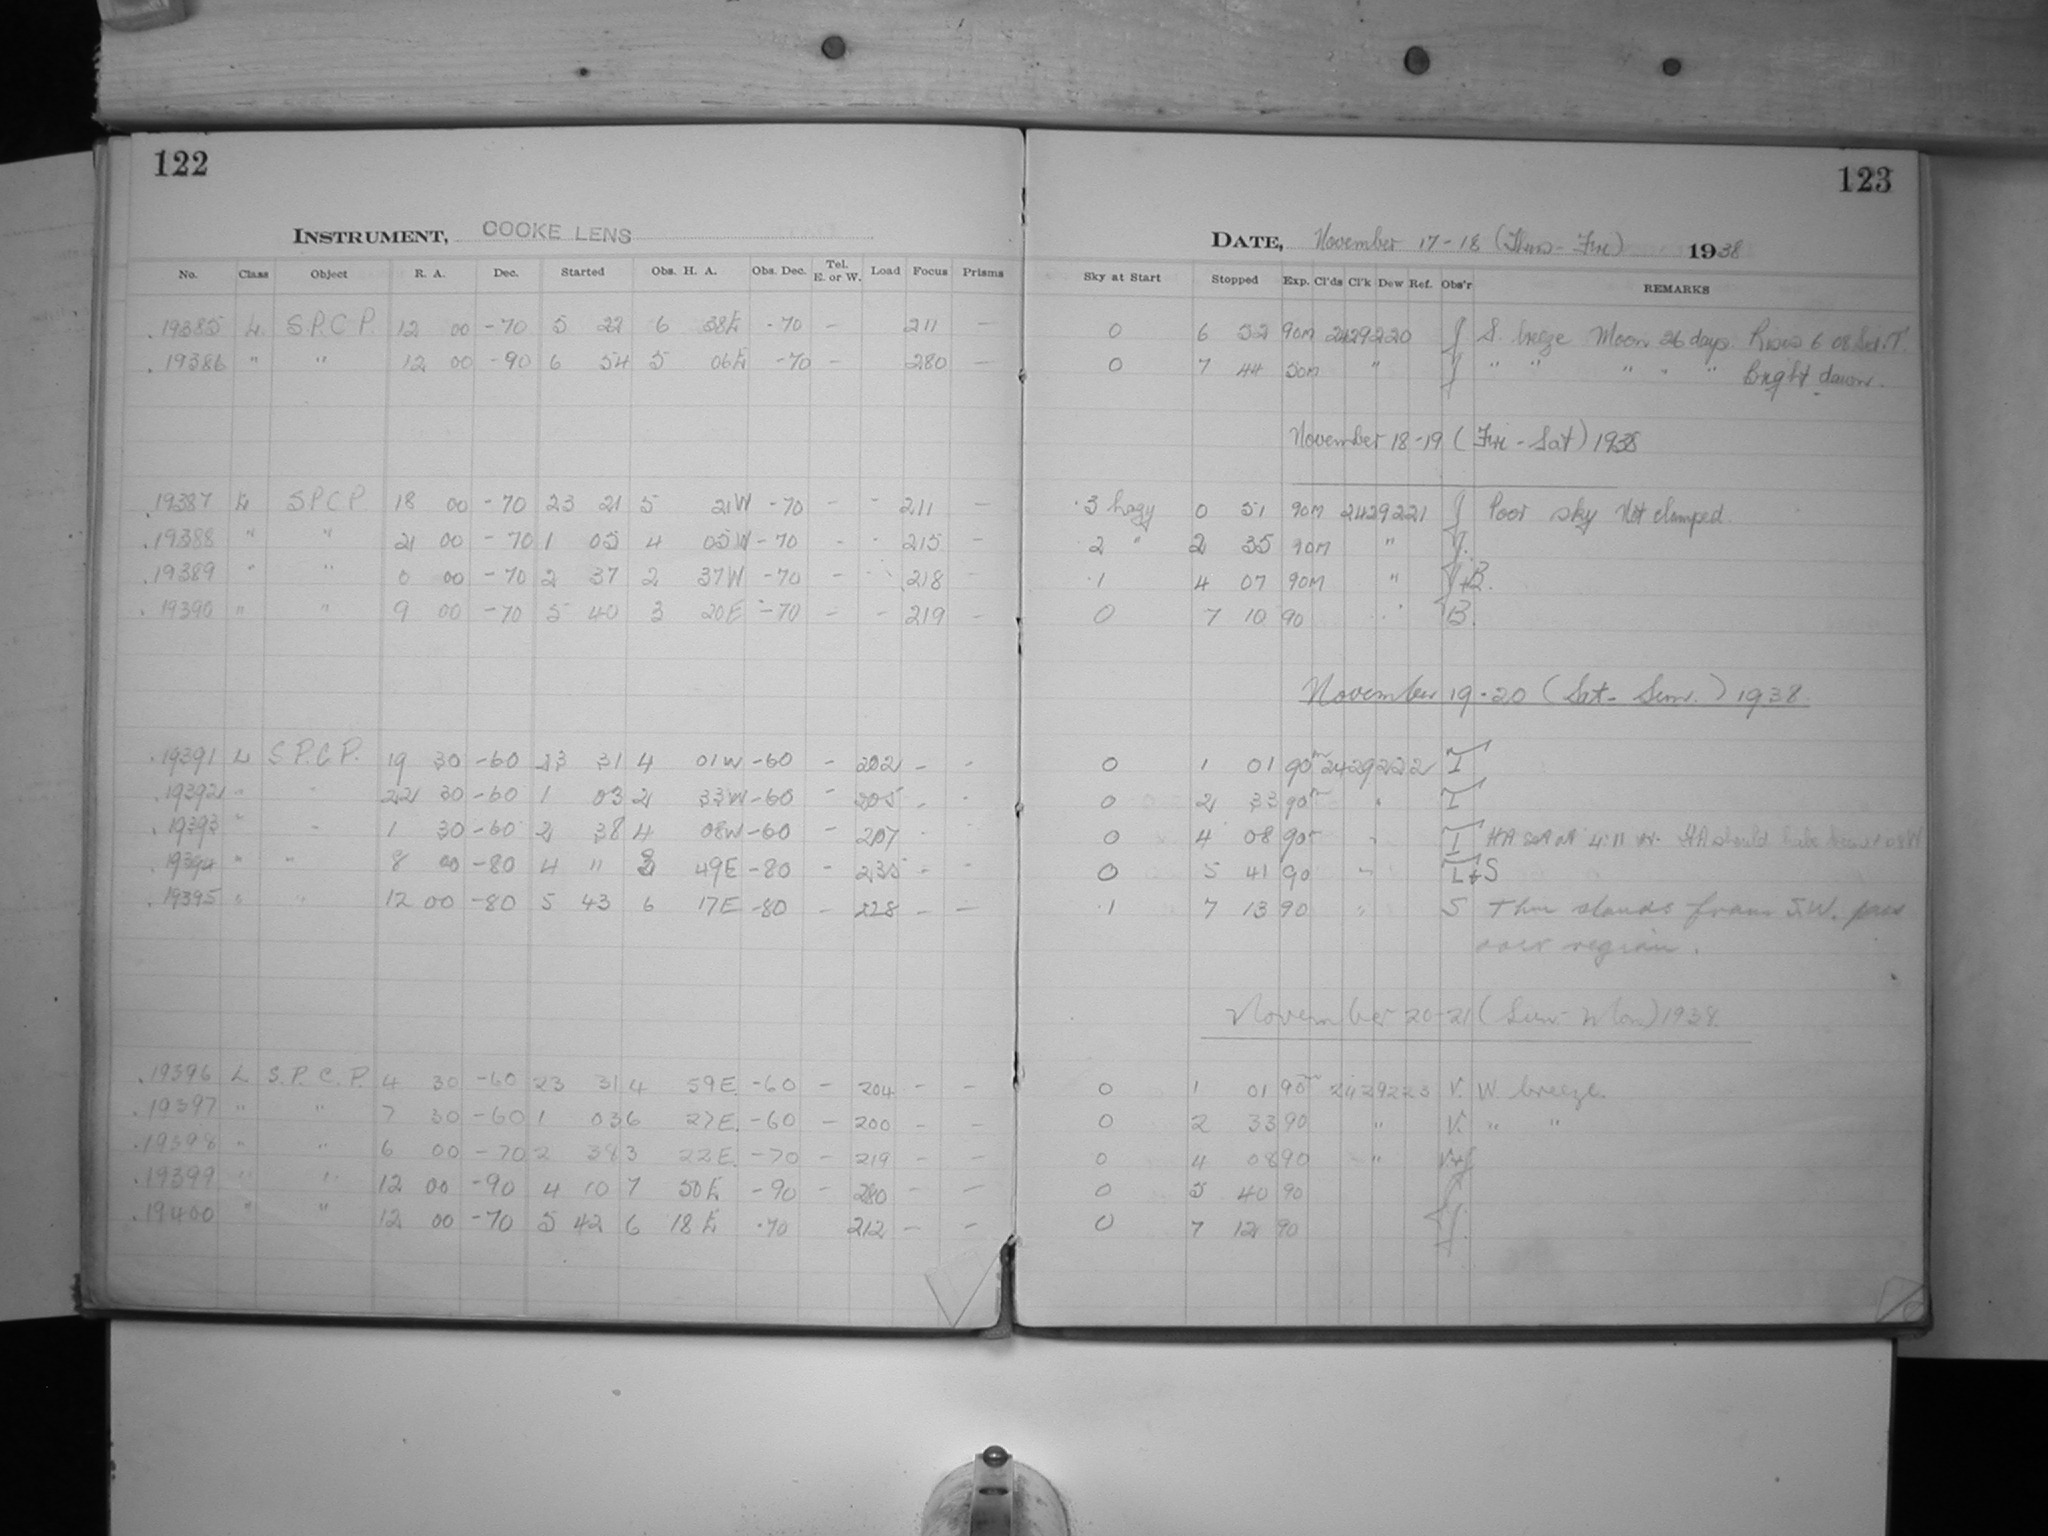 122
123
INSTRUMENT, COOKE LENS
DATE, November 17-18 (Thurs-Fri) 1938
No. Class Object R. A. Dec. Started Obs. H. A. Obs. Dec. Tel. E. or W. Load Focus Prisms Sky at Start Stopped Exp. Cl'ds Cl'k Dew Ref. Obs'r REMARKS
.19385 L S.P.C.P. 12 00 -70 5 22 6 38E -70 - 211 - 0 6 52 90m 2429220 J S. breeze Moon 26 days. Rises 6 08 Sid. T.
.19386 " " 12 00 -90 6 54 5 06E -70 - 280 - 0 7 44 50m " J " " " " " Bright dawn.
November 18-19 (Fri-Sat) 1938
.19387 L S.P.C.P. 18 00 -70 23 21 5 21W -70 - - 211 - .3 hazy 0 51 90m 2429221 J Poor sky Not clamped.
.19388 " " 21 00 -70 1 05 4 05W -70 - - 215 - .2 " 2 35 90m " J.
.19389 " " 0 00 -70 2 37 2 37W -70 - - 218 - .1 4 07 90m " J+B.
.19390 " " 9 00 -70 5 40 3 20E -70 - - 219 - 0 7 10 90 " B.
November 19-20 (Sat-Sun.) 1938.
.19391 L S.P.C.P. 19 30 -60 23 31 4 01W -60 - 202 - - 0 1 01 90m 2429222 T
.19392 " " 22 30 -60 1 03 2 33W -60 - 205 - - 0 2 33 90m " T
.19393 " - 1 30 -60 2 38 4 08W -60 - 207 - - 0 4 08 90m " T HA set at 4:11 W. HA should have been 1 08W
.19394 " " 8 00 -80 4 11 3 49E -80 - 235 - - 0 5 41 90 " T+S
.19395 " " 12 00 -80 5 43 6 17E -80 - 228 - - .1 7 13 90 " S Thin clouds from S.W. pass
over region.
November 20-21 (Sun-Mon) 1938.
.19396 L S.P.C.P. 4 30 -60 23 31 4 59E. -60 - 204 - - 0 1 01 90m 2429223 V. W. breeze.
.19397 " " 7 30 -60 1 03 6 27E. -60 - 200 - - 0 2 33 90 " V. " "
.19398 " " 6 00 -70 2 38 3 22E. -70 - 219 - - 0 4 08 90 " V+J
.19399 " " 12 00 -90 4 10 7 50E -90 - 280 - - 0 5 40 90
.19400 " " 12 00 -70 5 42 6 18E -70 212 - - 0 7 12 90 J.